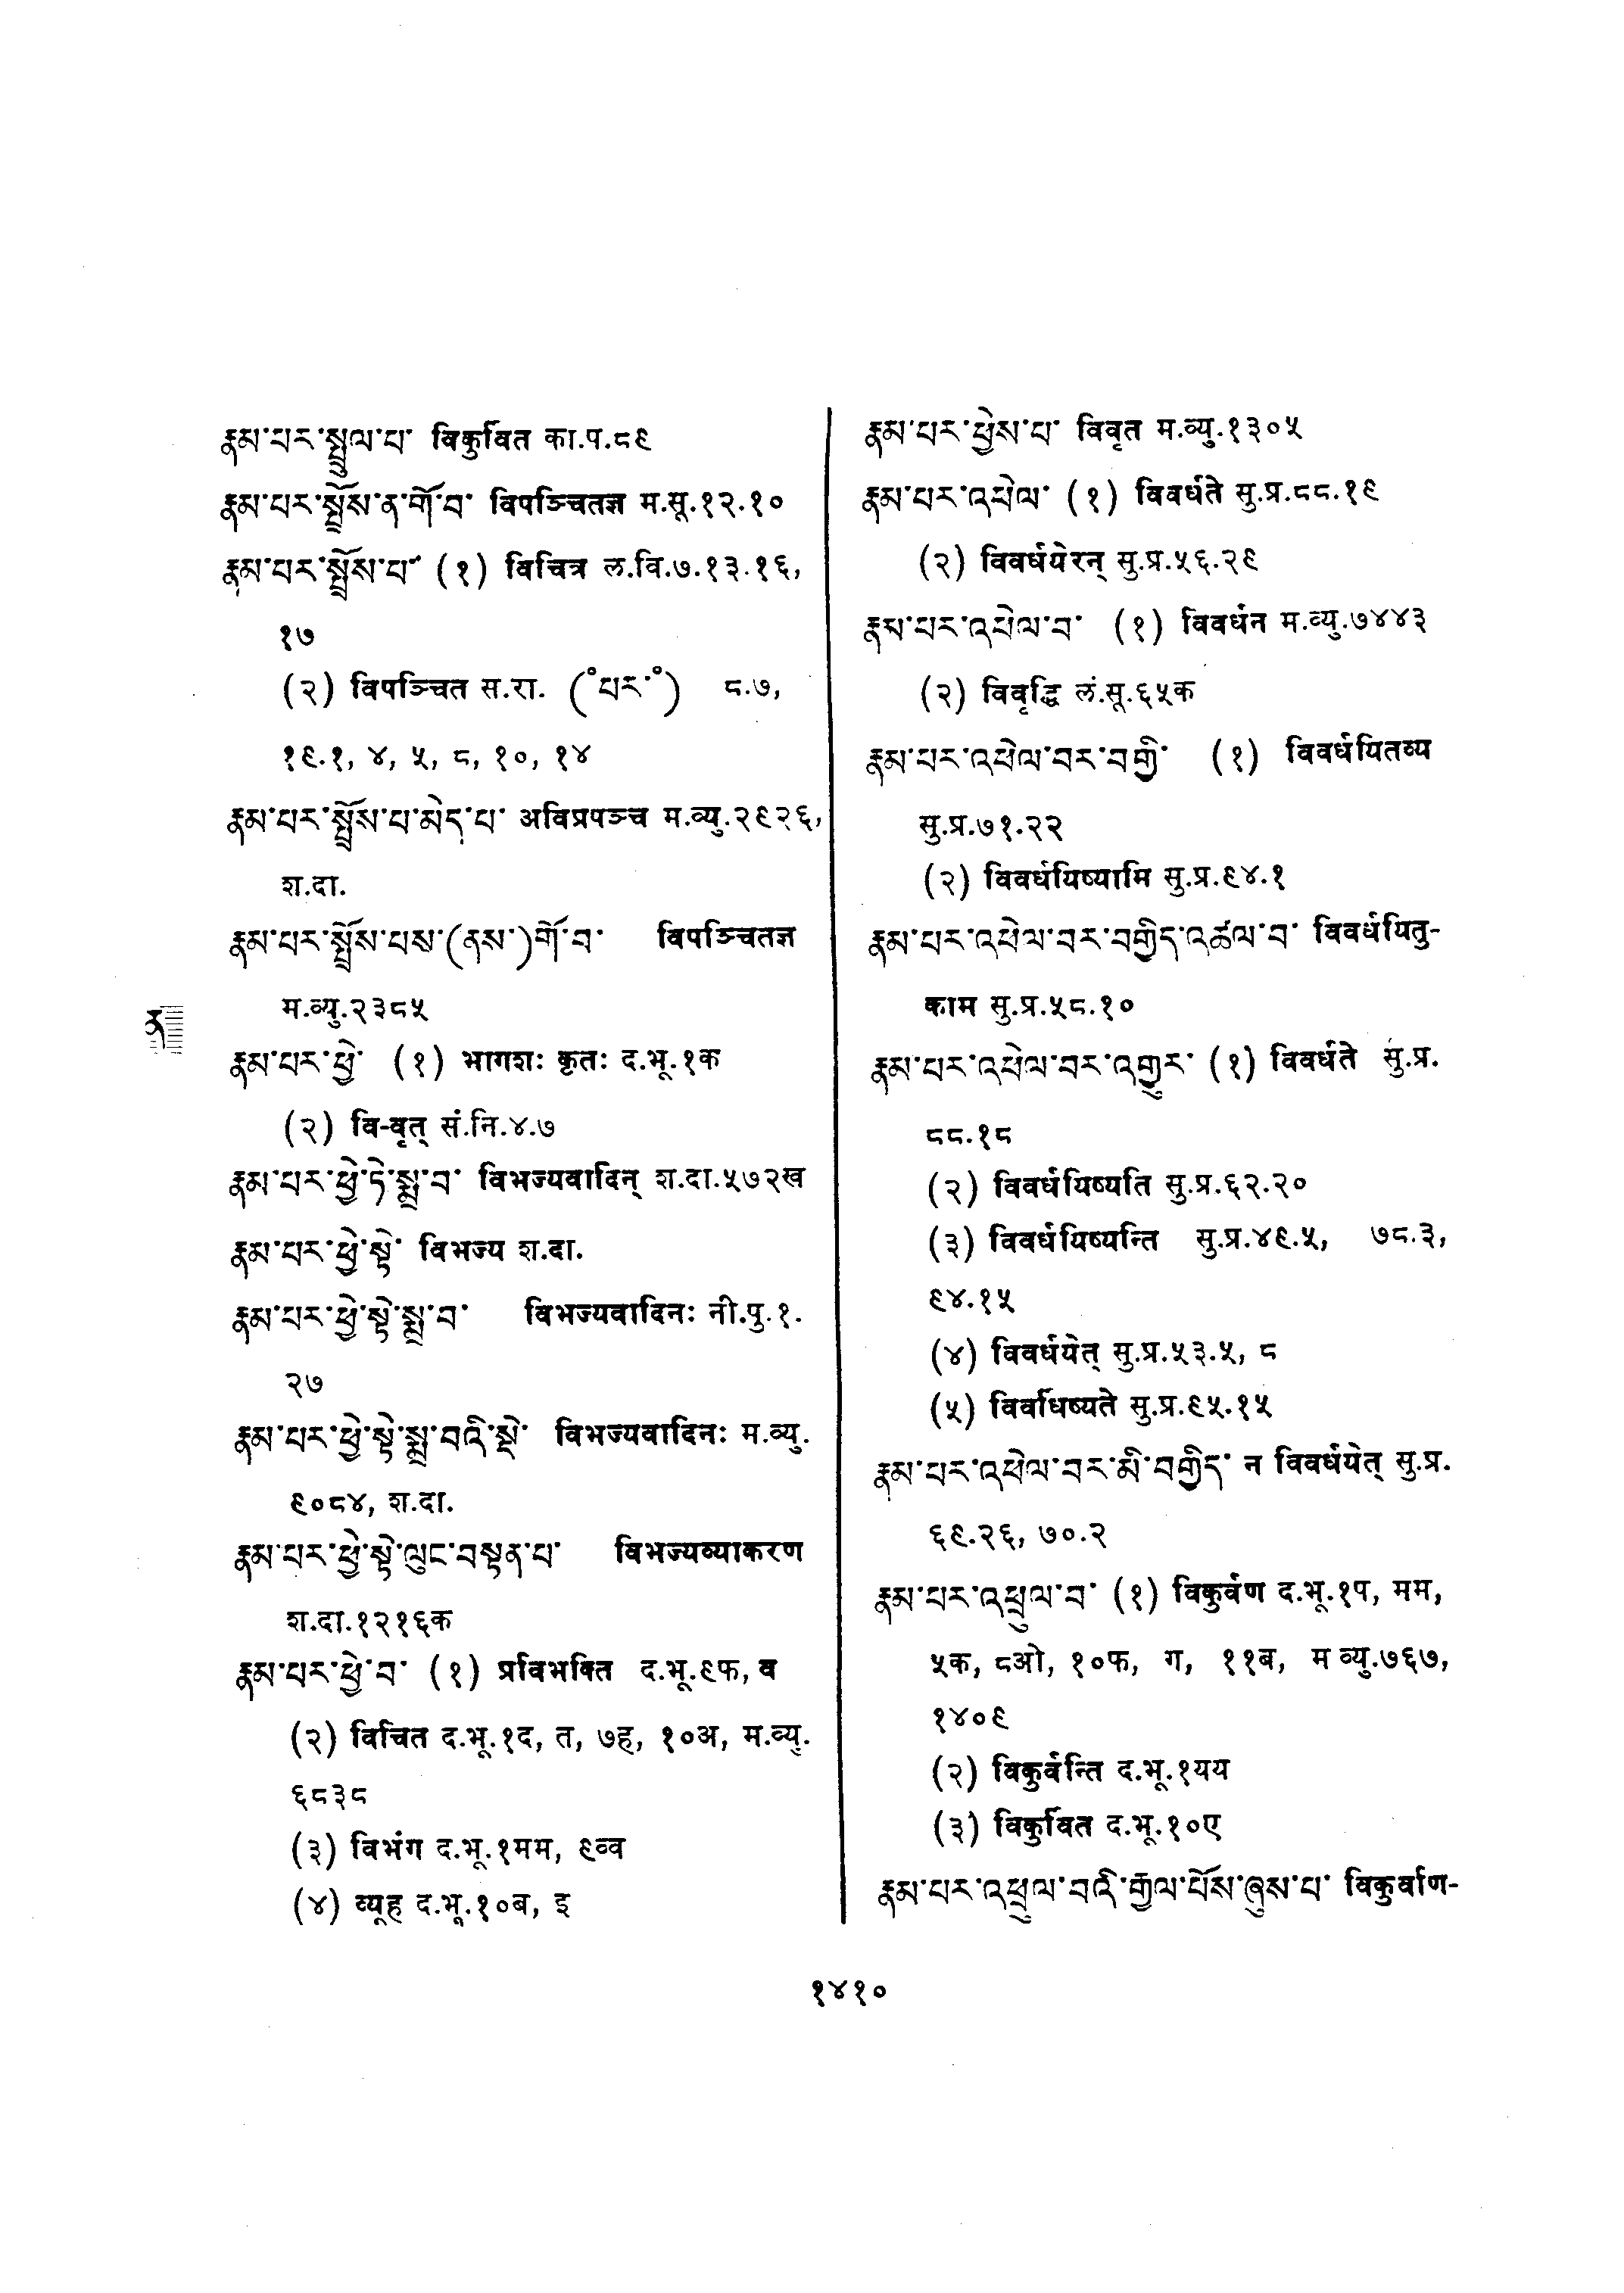 རྣམ་པར་སྤྲུལ་པ་ विकुर्वित का.प.८९
རྣམ་པར་སྤྲོས་ན་གོ་བ་ विपञ्चितज्ञ म.सू.१२.१०
རྣམ་པར་སྤྲོས་པ་ (१) विचित्र ल.वि.७.१३.१६,
१७
(२) विपञ्चित स.रा. (°པར་°) ८.७,
१९.१, ४, ५, ८, १०, १४
རྣམ་པར་སྤྲོས་པ་མེད་པ་ अविप्रपञ्च म.व्यु.२९२६,
श.दा.
རྣམ་པར་སྤྲོས་པས་(ནས་)གོ་བ་ विपञ्चितज्ञ
म.व्यु.२३८५
རྣམ་པར་ཕྱེ་ (१) भागशः कृतः द.भू.१क
(२) वि-वृत् सं.नि.४.७
རྣམ་པར་ཕྱེ་ཏེ་སྨྲ་བ་ विभज्यवादिन् श.दा.५७२ख
རྣམ་པར་ཕྱེ་སྟེ་ विभज्य श.दा.
རྣམ་པར་ཕྱེ་སྟེ་སྨྲ་བ་ विभज्यवादिनः नी.पु.१.
२७
རྣམ་པར་ཕྱེ་སྟེ་སྨྲ་བའི་སྡེ་ विभज्यवादिनः म.व्यु.
९०८४, श.दा.
རྣམ་པར་ཕྱེ་སྟེ་ལུང་བསྟན་པ་ विभज्यव्याकरण
श.दा.१२१६क
རྣམ་པར་ཕྱེ་བ་ (१) प्रविभक्ति द.भू.९फ, व
(२) विचित द.भू.१द, त, ७ह, १०अ, म.व्यु.
६८३८
(३) विभंग द.भू.१मम, ९व्व
(४) व्यूह द.भू.१०ब, इ
ན
རྣམ་པར་ཕྱེས་པ་ विवृत म.व्यु.१३०५
རྣམ་པར་འཕེལ་ (१) विवर्धते सु.प्र.८८.१९
(२) विवर्धयेरन् सु.प्र.५६.२९
རྣམ་པར་འཕེལ་བ་ (१) विवर्धन म.व्यु.७४४३
(२) विवृद्धि लं.सू.६५क
རྣམ་པར་འཕེལ་བར་བགྱི་ (१) विवर्धयितव्य
सु.प्र.७१.२२
(२) विवर्धयिष्यामि सु.प्र.९४.१
རྣམ་པར་འཕེལ་བར་བགྱིད་འཚལ་བ་ विवर्धयितु-
काम सु.प्र.५८.१०
རྣམ་པར་འཕེལ་བར་འགྱུར་ (१) विवर्धते सु.प्र.
८८.१८
(२) विवर्धयिष्यति सु.प्र.६२.२०
(३) विवर्धयिष्यन्ति सु.प्र.४९.५, ७८.३,
९४.१५
(४) विवर्धयेत् सु.प्र.५३.५, ८
(५) विवर्धिष्यते सु.प्र.९५.१५
རྣམ་པར་འཕེལ་བར་མི་བགྱིད་ न विवर्धयेत् सु.प्र.
६९.२६, ७०.२
རྣམ་པར་འཕྲུལ་བ་ (१) विकुर्वण द.भू.१प, मम,
५क, ८ओ, १०फ, ग, ११ब, म व्यु.७६७,
१४०९
(२) विकुर्वन्ति द.भू.१यय
(३) विकुर्वित द.भू.१०ए
རྣམ་པར་འཕྲུལ་བའི་རྒྱལ་པོས་ཞུས་པ་ विकुर्वाण-
१४१०